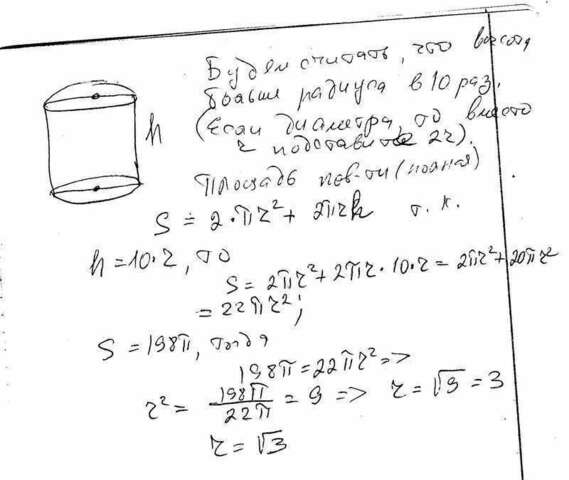 Будем считать, что высота
больше радиуса в 10 раз.
(Если диаметра, то вместо
r подставите 2r).
h
Площадь пов-ти (полная)
S = 2·πr² + 2πrh т.к.
h = 10·r, то
S = 2πr² + 2πr·10·r = 2πr² + 20πr²
= 22πr²;
S = 198π, тогда
198π = 22πr² =>
r² = 198π/22π = 9 => r = √9 = 3
r = √3